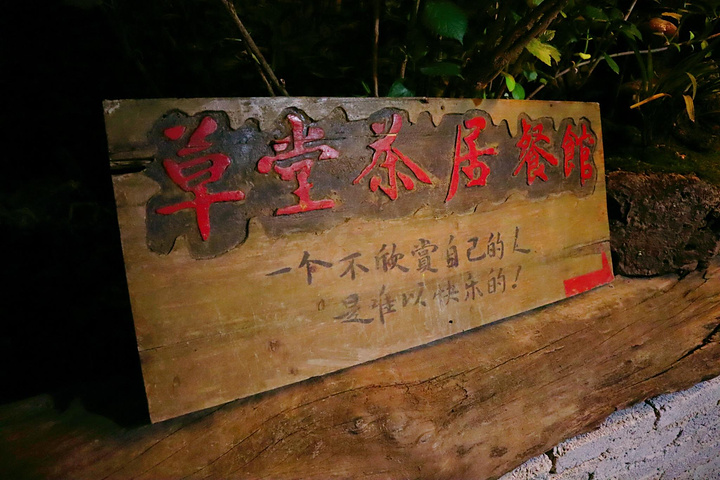 草堂茶居餐館
一个不欣赏自己的人
是难以快乐的！